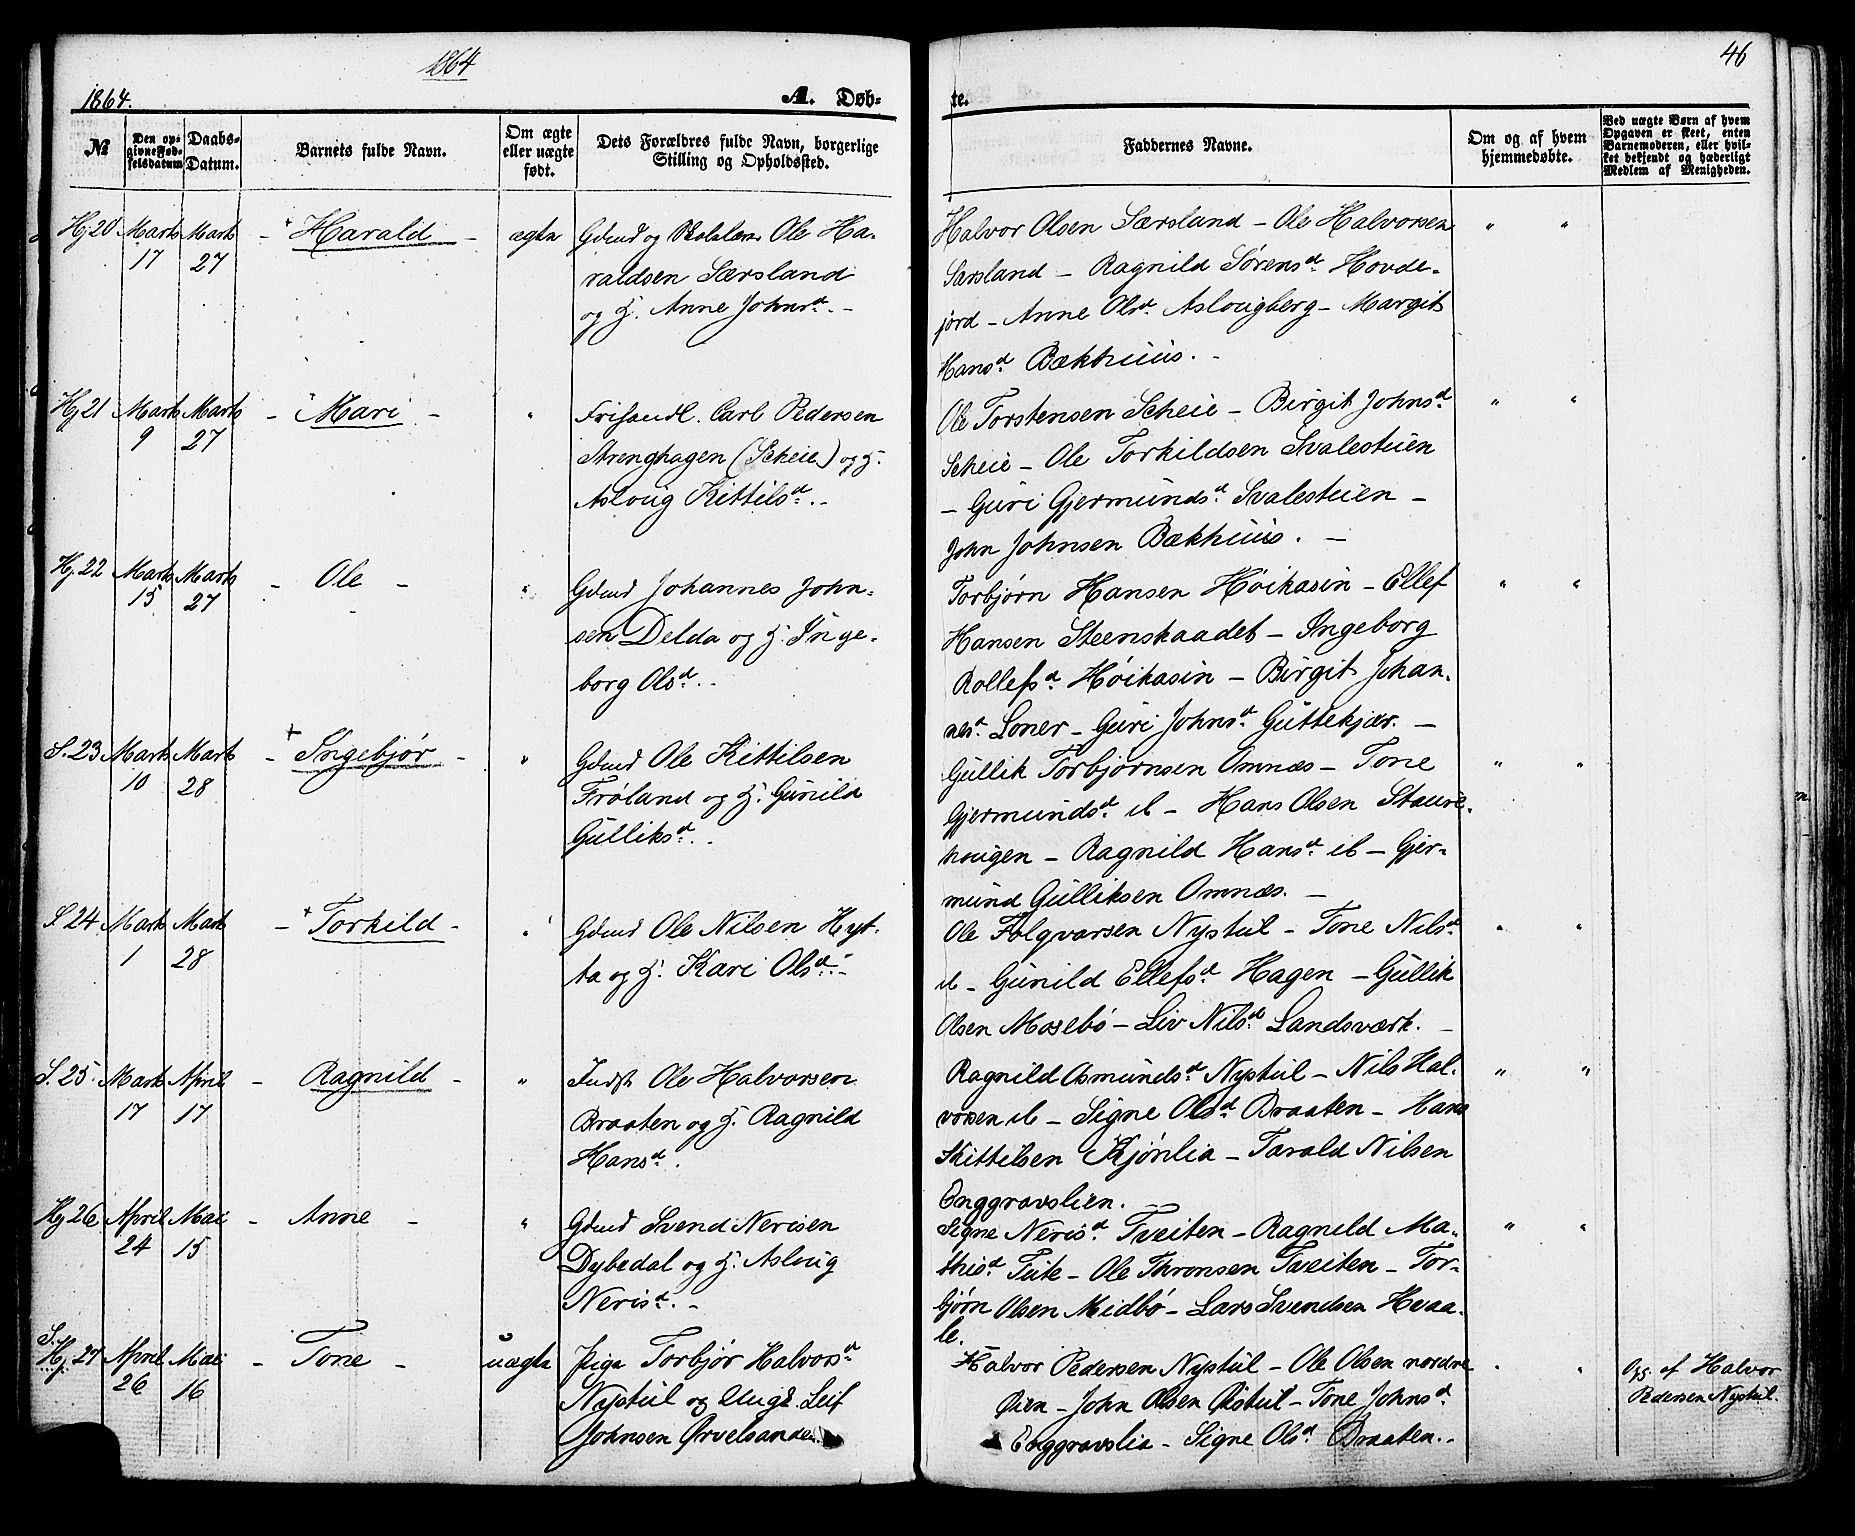 1864
46
1864.
A. Døb-
te.
№
Den op-
givne Fød-
selsdatum
Daabs-
Datum.
Barnets fulde Navn.
Om ægte
eller uægte
født.
Dets Forældres fulde Navn, borgerlige
Stilling og Opholdssted.
Faddernes Navne.
Om og af hvem
hjemmedøbte.
Ved uægte Børn af hvem
Opgaven er skeet, enten
Barnemoderen, eller hvil-
ket bekjendt og hæderligt
Medlem af Menigheden.
Hj 20 Marts 17 Marts 27 - + Harald - ægte
Gdmd og Skolelærer Ole Ha-
raldsen Særsland
og H. Anne Johnsd. -
Halvor Olsen Særsland - Ole Halvorsen " "
Særsland - Ragnild Sørensd. Hovde-
jord - Anne Olsd. Aslougberg - Margit
Hansd Bækhuus. -
Hj 21 Marts 9 Marts 27 - Mari - "
Carl Pedersen
Strenghagen (Scheie) og H.
Asloug Kittilsd. -
Ole Torstensen Scheie - Birgit Johnsd. " "
Scheie - Ole Torkildsen Svalestuen
- Guri Gjermundsd. Svalestuen -
John Johnsen Bækhuus. -
Hj. 22 Marts 15 Marts 27 - Ole - "
Gdmd Johannes John-
sen Delda og H. Inge-
borg Olsd. -
Torbjørn Hansen Høikasin - Ellef " "
Hansen Steenskaadet - Ingeborg
Rollefsd Høikasin - Birgit Johan-
nesd. Loner - Guri Johnsd. Guttekjær. -
S. 23 Marts 10 Marts 28 - + Ingebjør - "
Gdmd Ole Kittilsen
Frøland og H. Gunild
Gulliksd. -
Gullik Torbjørnsen Omnæs - Tone " "
Gjermundsd. ib - Hans Olsen Staure-
hougen - Ragnild Hansd. ib - Gjer-
mund Gulliksen Omnæs. -
S. 24 Marts 1 Marts 28 - + Torkild - "
Gdmd Ole Nilsen Hyt-
ta og H. Kari Olsd. -
Ole Folqvarsen Nystul - Tone Nilsd. " "
ib - Gunild Ellefsd Hagen - Gullik
Olsen Mosebø - Liv Nilsd. Landsværk. -
S. 25 Marts 17 April 17 - Ragnild - "
Indst Ole Halvorsen
Braaten og H. Ragnild
Hansd.
Ragnild Osmundsd. Nystul - Nils Hal- " "
vorsen ib - Signe Olsd Braaten - Hans
Kittelsen Kjønlia - Tarald Nilsen
Enggravslien.
Hj 26. April 24 Mai 15 - Anne - "
Gdmd Svend Nerisen
Dybedal og H. Asloug
Nerisd. -
Signe Nerisd Tveiten - Ragnild Ma- " "
thisd Tute - Ole Thronsen Tveiten - Tor-
bjørn Olsen Midbø - Lars Svendsen Hvaa-
le.
S.
Hj. 27 April 26 Mai 16 - Tone - uægte
Pige Torbjør Halvorsd
Nystul og Ungk. Leif
Johnsen Ørvelsanden
Halvor Pedersen Nystul - Ole Olsen nordre " "
Øien - John Olsen Øistul - Tone Johnsd
Enggravslia - Signe Olsd Braaten. -
Opg. af Halvor
Pedersen Nystul.